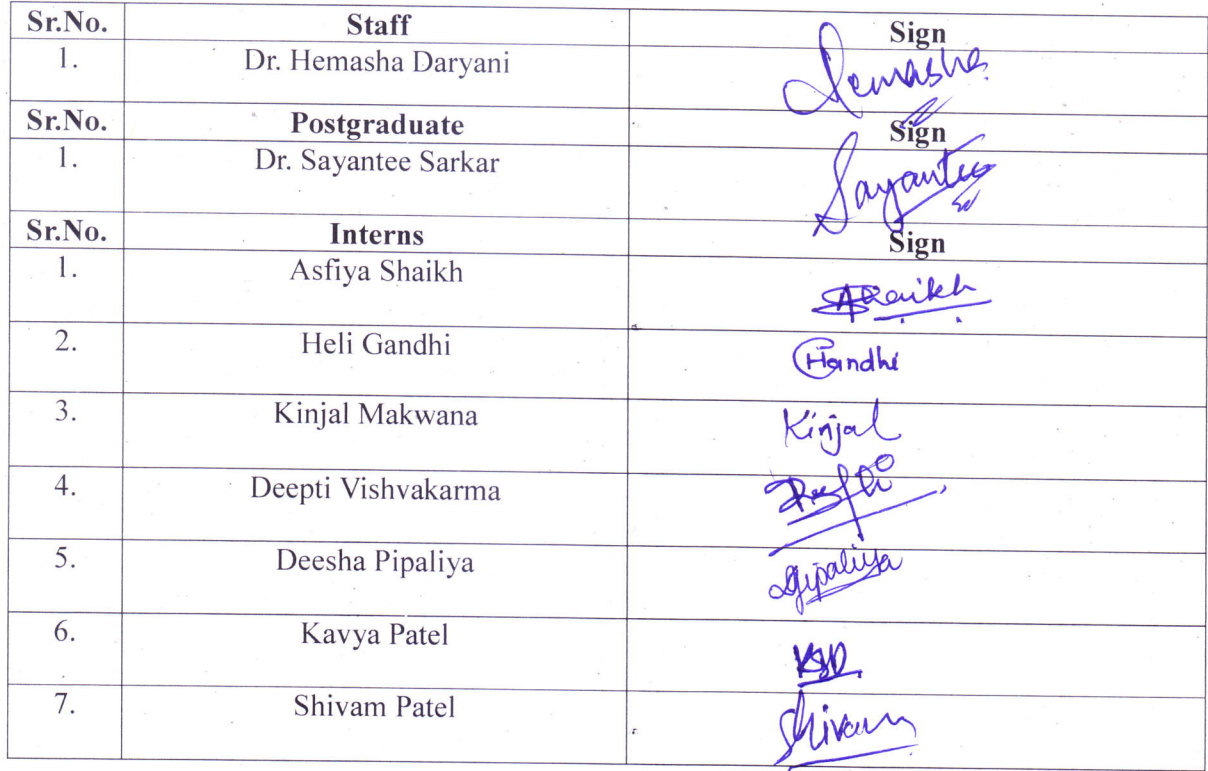 Sr.No. Staff Sign
1. Dr. Hemasha Daryani Hemasha
Sr.No. Postgraduate Sign
1. Dr. Sayantee Sarkar Sayantee
Sr.No. Interns Sign
1. Asfiya Shaikh AShaikh
2. Heli Gandhi HGandhi
3. Kinjal Makwana Kinjal
4. Deepti Vishvakarma Deepti
5. Deesha Pipaliya Dpipaliya
6. Kavya Patel
7. Shivam Patel Shivam